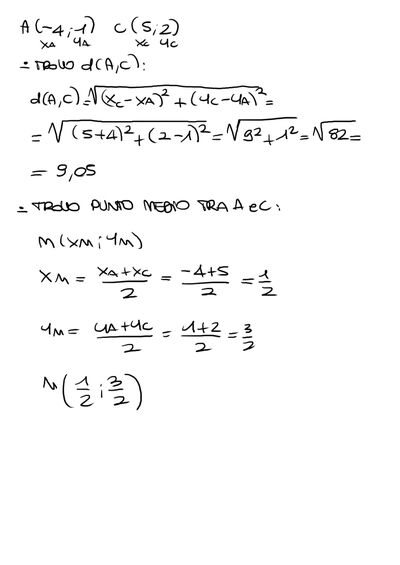 A(-4;1) C(5;2)
xA yA xC yC
- TROVO d(A,C):
d(A,C)=√(xC-xA)²+(yC-yA)²=
=√(5+4)²+(2-1)²=√9²+1²=√82=
= 9,05
- TROVO PUNTO MEDIO TRA A e C:
M(xM;yM)
xM = xA+xC/2 = -4+5/2 = 1/2
yM = yA+yC/2 = 1+2/2 = 3/2
M(1/2;3/2)